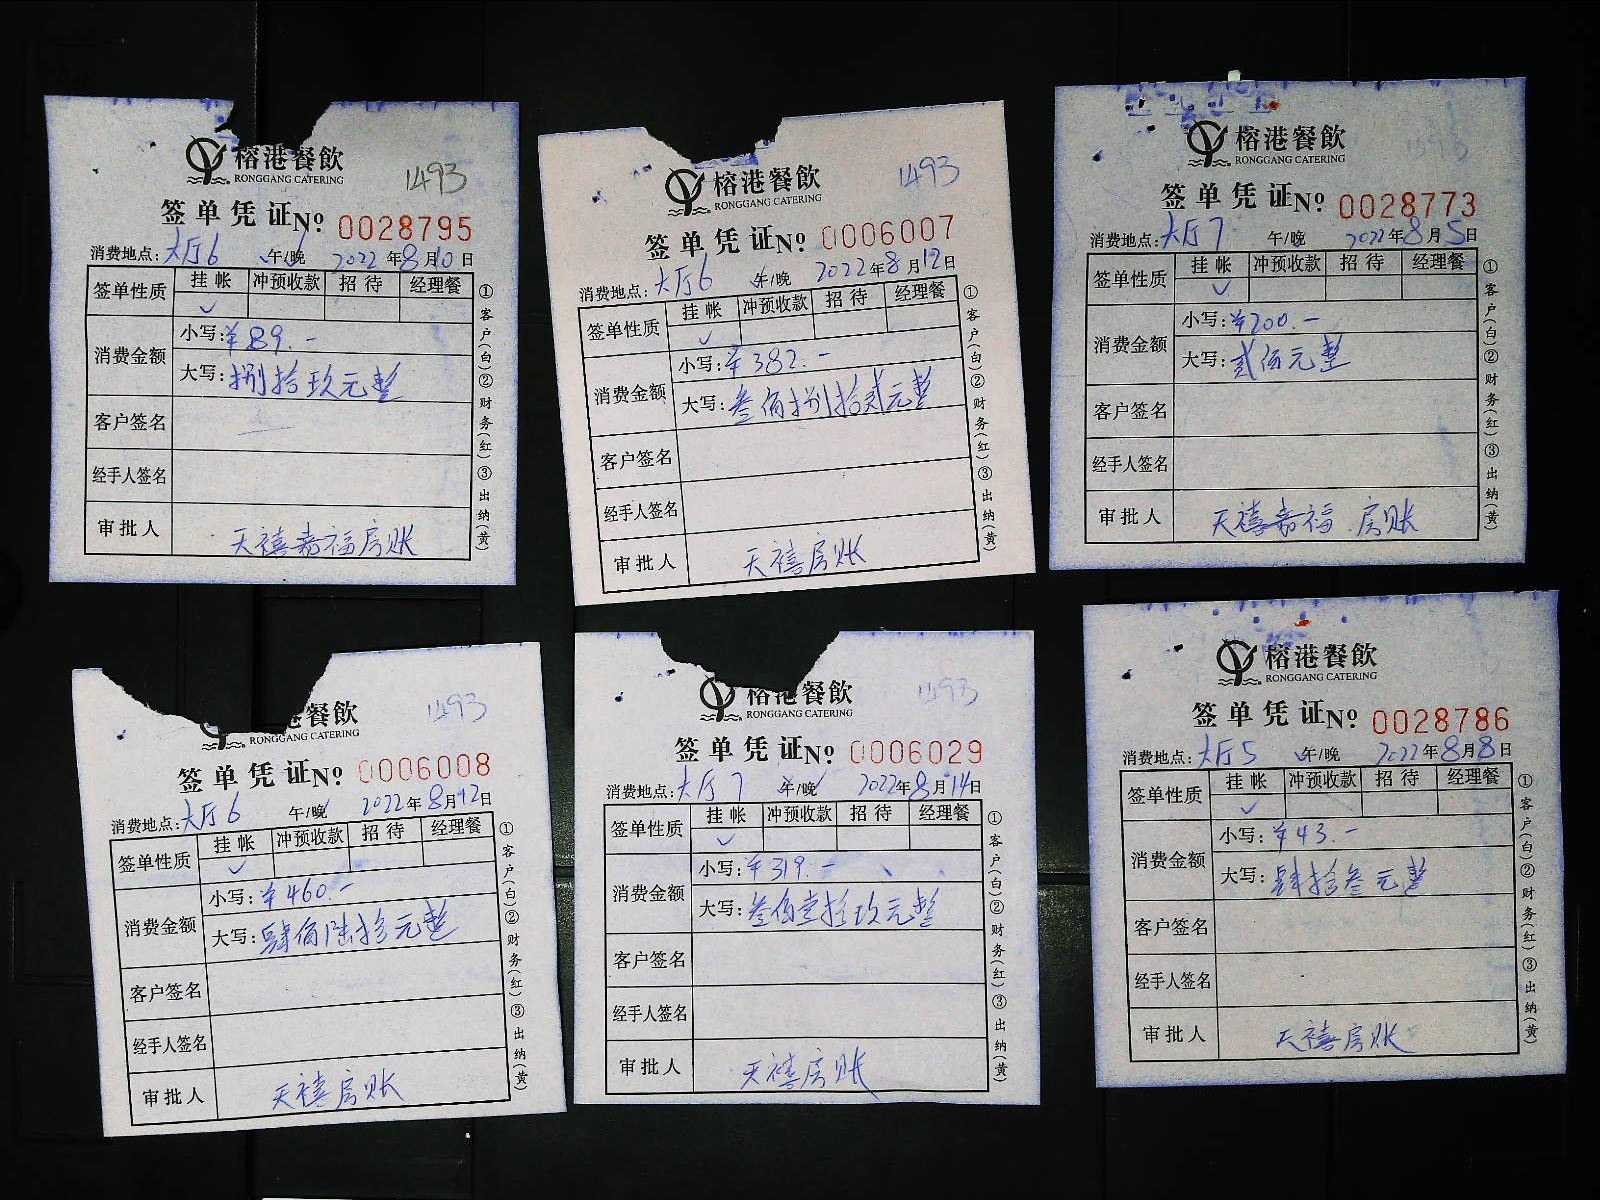 榕港餐飲
RONGGANG CATERING
1493
签单凭证 No 0028795
消费地点:大厅6 午/晚 2022年8月10日
签单性质 挂帐 冲预收款 招待 经理餐
✓
消费金额 小写:¥89.-
大写:捌拾玖元整
客户签名
经手人签名
审批人 天禧嘉福房账
①客户(白)②财务(红)③出纳(黄)
榕港餐飲
RONGGANG CATERING
1493
签单凭证 No 0006007
消费地点:大厅6 午/晚 2022年8月12日
签单性质 挂帐 冲预收款 招待 经理餐
✓
消费金额 小写:¥382.-
大写:叁佰捌拾贰元整
客户签名
经手人签名
审批人 天禧房账
①客户(白)②财务(红)③出纳(黄)
榕港餐飲
RONGGANG CATERING
1493
签单凭证 No 0028773
消费地点:大厅7 午/晚 2022年8月5日
签单性质 挂帐 冲预收款 招待 经理餐
✓
消费金额 小写:¥200.-
大写:贰佰元整
客户签名
经手人签名
审批人 天禧嘉福.房账
①客户(白)②财务(红)③出纳(黄)
港餐飲
RONGGANG CATERING
1493
签单凭证 No 0006008
消费地点:大厅6 午/晚 2022年8月12日
签单性质 挂帐 冲预收款 招待 经理餐
✓
消费金额 小写:¥460.-
大写:肆佰陆拾元整
客户签名
经手人签名
审批人 天禧房账
①客户(白)②财务(红)③出纳(黄)
榕港餐飲
RONGGANG CATERING
1493
签单凭证 No 0006029
消费地点:大厅7 午/晚 2022年8月14日
签单性质 挂帐 冲预收款 招待 经理餐
✓
消费金额 小写:¥319.-
大写:叁佰壹拾玖元整
客户签名
经手人签名
审批人 天禧房账
①客户(白)②财务(红)③出纳(黄)
榕港餐飲
RONGGANG CATERING
签单凭证 No 0028786
消费地点:大厅5 午/晚 2022年8月8日
签单性质 挂帐 冲预收款 招待 经理餐
✓
消费金额 小写:¥43.-
大写:肆拾叁元整
客户签名
经手人签名
审批人 天禧房账
①客户(白)②财务(红)③出纳(黄)